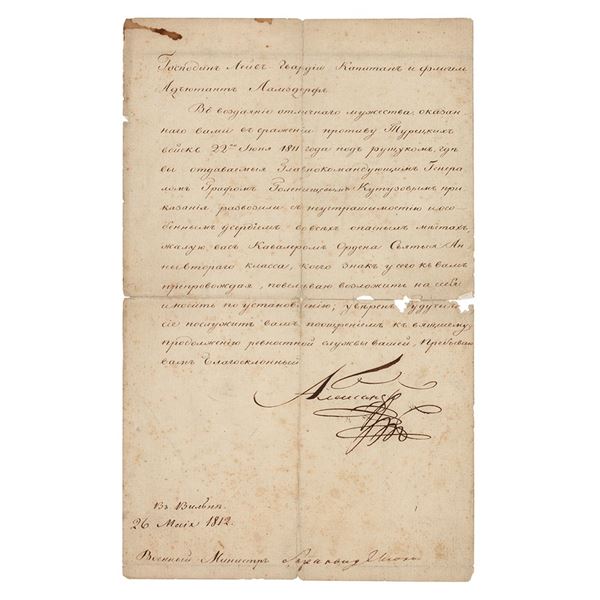 Господинъ Лейбъ Гвардіи Капитанъ и флигель
Адъютантъ Ламздорфъ
Въ воздаяніе отличнаго мужества, оказан-
наго вами въ сраженіи противу Турецкихъ
войскъ 22го Іюня 1811 года подъ рущукомъ, гдѣ
вы отдаваемыя Главнокомандующимъ Генера-
ломъ Графомъ Голенищевымъ Кутузовымъ при-
казанія развозили съ неустрашимостію и осо-
беннымъ усердіемъ во всѣхъ опасныхъ мѣстахъ,
жалую васъ Кавалеромъ Ордена Святыя Ан-
ны втораго класса, коего знакъ у сего къ вамъ
препровождая, повелѣваю возложить на себя
и носить по установленію; увѣренъ будучи
сіе послужитъ вамъ поощреніемъ къ вящшему
продолженію ревностной службы вашей. Пребываю
вамъ Благосклонный
Александръ
Въ Вильнѣ
26 Маія 1812.
Военный Министръ